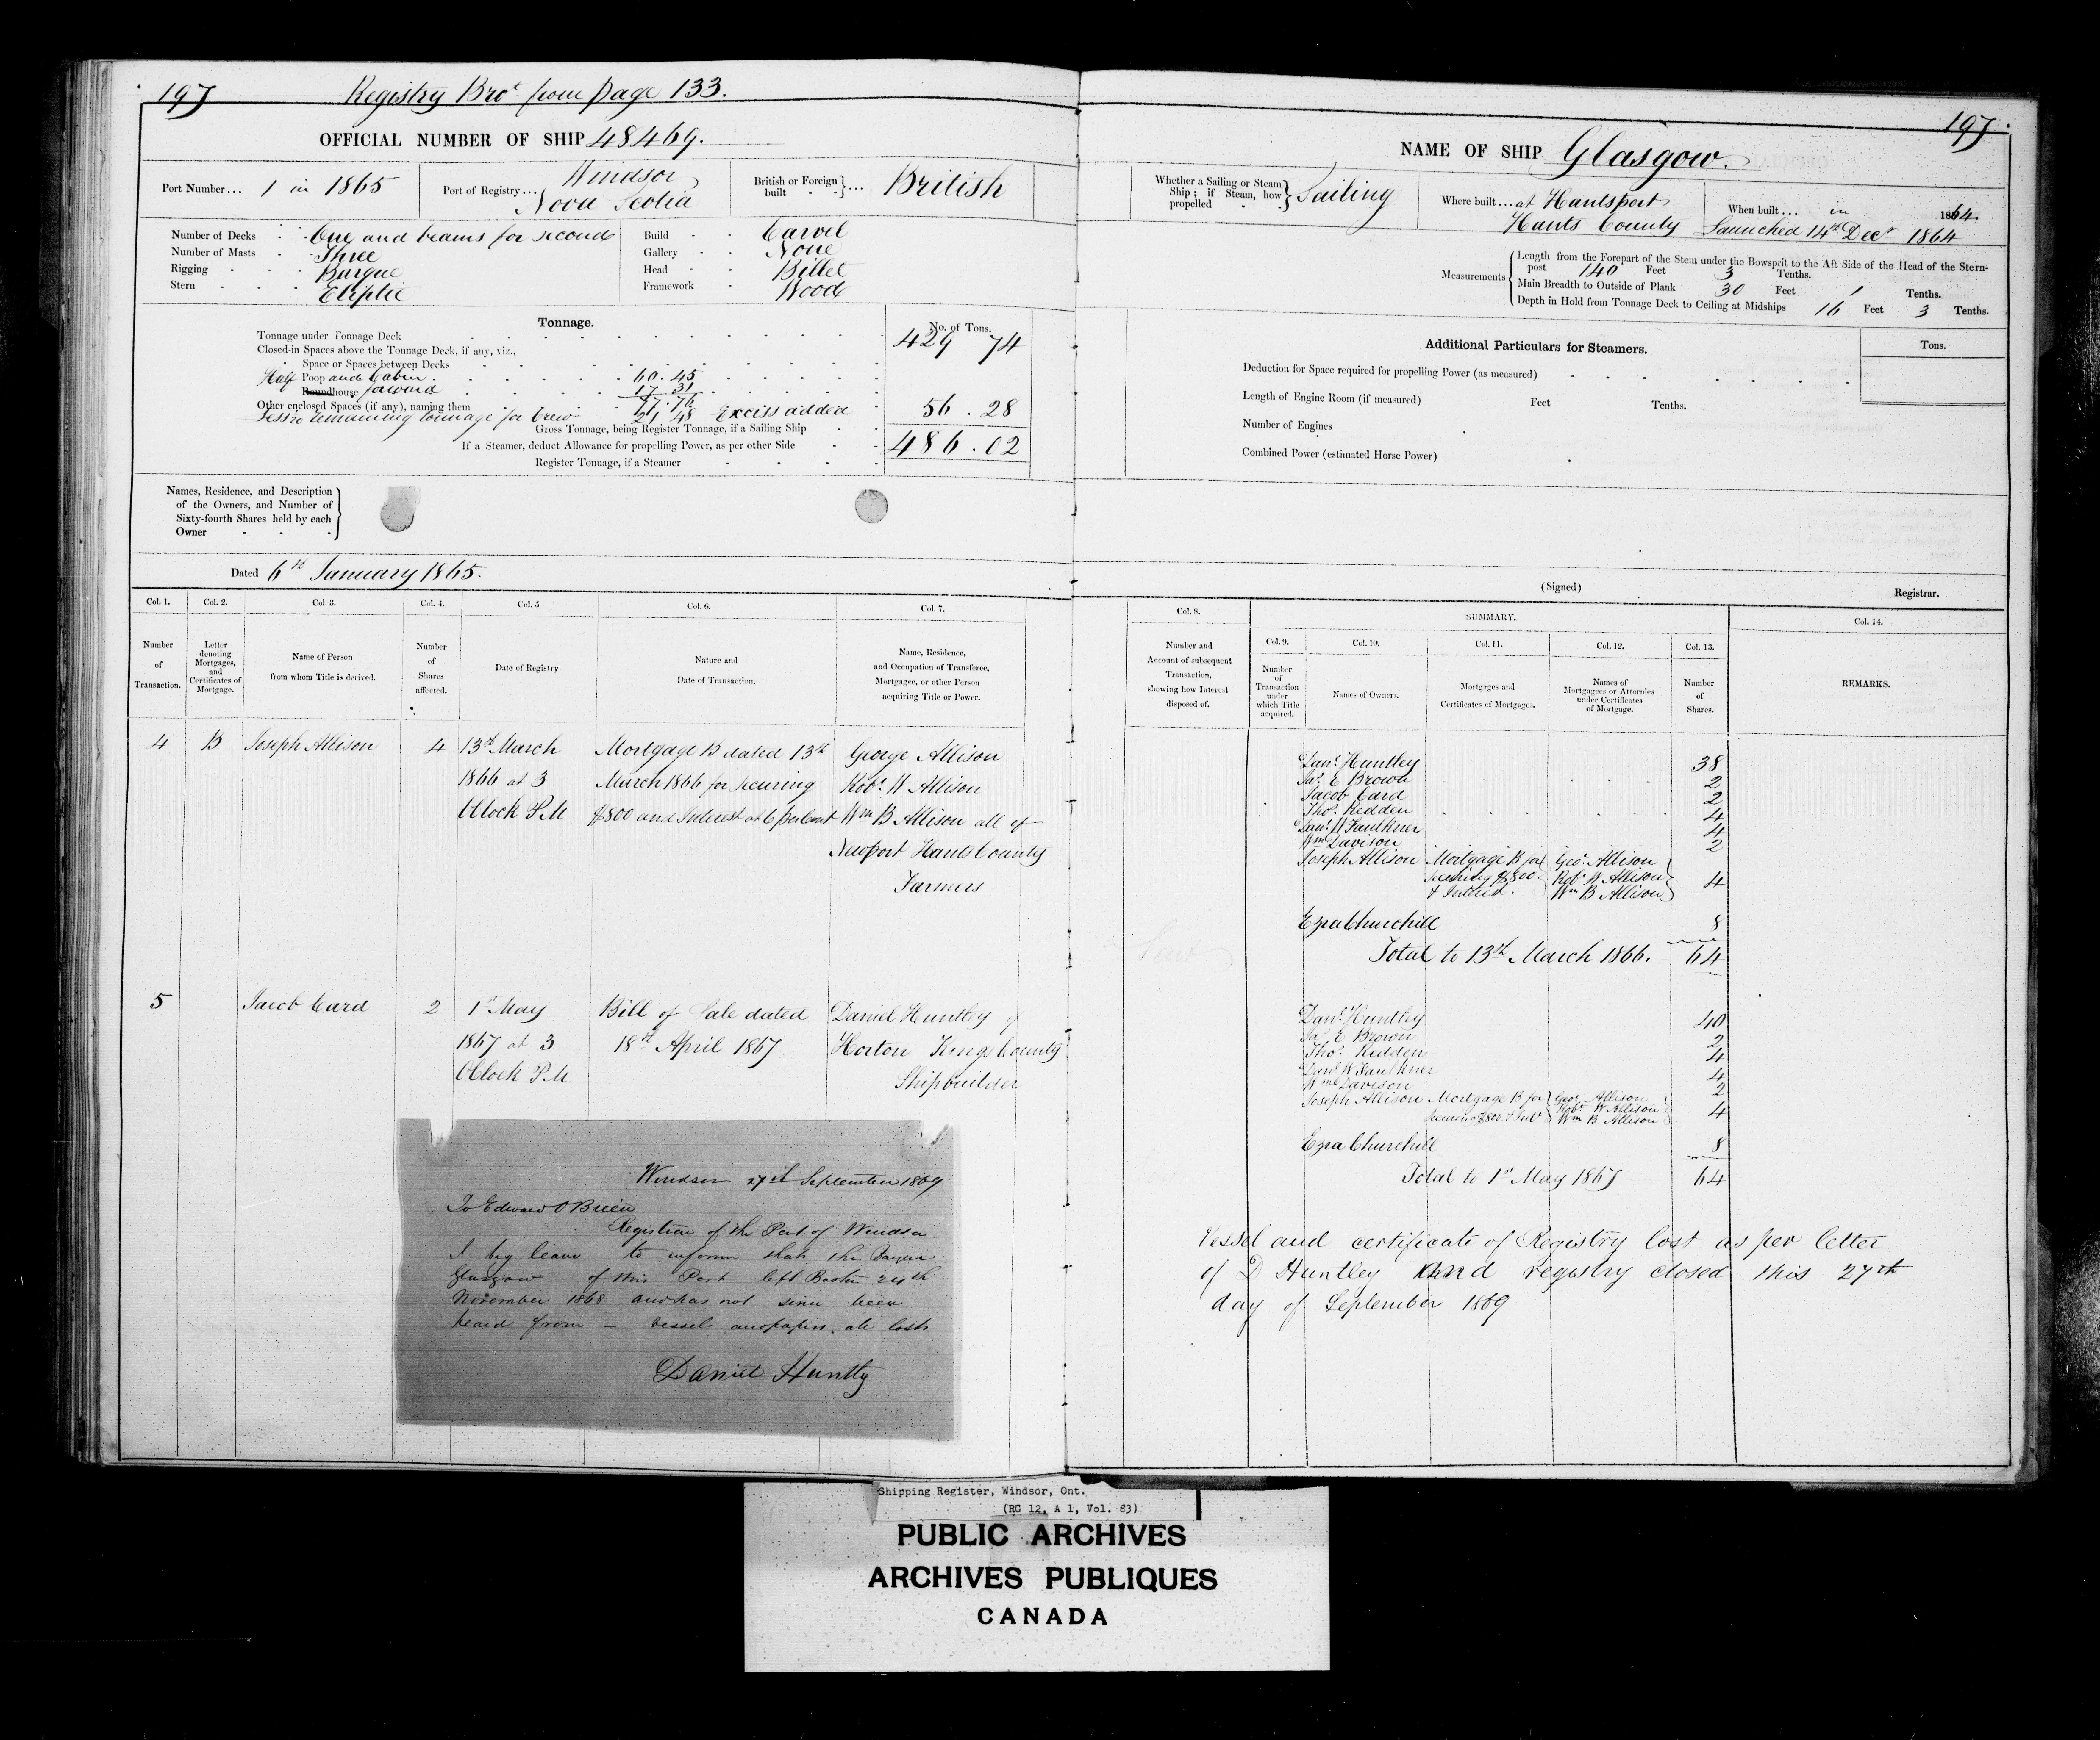 197
Registry Bro^t from page 133.
OFFICIAL NUMBER OF SHIP 48469.
Port Number... 1 in 1865
Port of Registry... Windsor
Nova Scotia
British or Foreign built } ... British
Number of Decks One and beams for second
Number of Masts Three
Rigging Barque
Stern Eliptic
Build Carvel
Gallery None
Head Billet
Framework Wood
Tonnage.
No. of Tons.
Tonnage under Tonnage Deck 429 74
Closed-in Spaces above the Tonnage Deck, if any, viz.,
Space or Spaces between Decks
Half Poop and Cabin 60.45
Roundhouse forward 17.31
Other enclosed Spaces (if any), naming them 77.76
Less remaining tonnage for Crew 21 48 Excess added 56.28
Gross Tonnage, being Register Tonnage, if a Sailing Ship
If a Steamer, deduct Allowance for propelling Power, as per other Side 486.02
Register Tonnage, if a Steamer
Names, Residence, and Description
of the Owners, and Number of
Sixty-fourth Shares held by each
Owner
Dated 6th January 1865.
Col. 1.
Number
of
Transaction.
Col. 2.
Letter
denoting
Mortgages,
and
Certificates of
Mortgage.
Col. 3.
Name of Person
from whom Title is derived.
Col. 4.
Number
of
Shares
affected.
Col. 5
Date of Registry
Col. 6.
Nature and
Date of Transaction.
Col. 7.
Name, Residence,
and Occupation of Transferee,
Mortgagee, or other Person
acquiring Title or Power.
4
B
Joseph Allison
4
13th March
1866 at 3
OClock P.M
Mortgage B dated 13th
March 1866 for securing
$800 and Interest at 6 per Cent
George Allison
Rob^t. W Allison
Wm B Allison all of
Newport Hants County
Farmers
5
Jacob Card
2
1st May
1867 at 3
OClock P.M
Bill of Sale dated
18th April 1867
Daniel Huntley of
Horton Kings County
Shipbuilder
Windsor 27th September 1869
To Edward OBrien
Registrar of the Port of Windsor
I beg leave to inform that the Barque
Glasgow of this Port left Boston 24th
November 1868 and has not since been
heard from – vessel and papers all lost
Daniel Huntly
197.
NAME OF SHIP Glasgow.
Whether a Sailing or Steam
Ship; if Steam, how
propelled } Sailing
Where built... at Hantsport
Hants County
When built... in 1864.
Launched 14th Dec^r 1864
Measurements
Length from the Forepart of the Stem under the Bowsprit to the Aft Side of the Head of the Stern-
post 140 Feet 3 Tenths.
Main Breadth to Outside of Plank 30 Feet 1 Tenths.
Depth in Hold from Tonnage Deck to Ceiling at Midships 16 Feet 3 Tenths.
Additional Particulars for Steamers.
Tons.
Deduction for Space required for propelling Power (as measured)
Length of Engine Room (if measured) Feet Tenths.
Number of Engines
Combined Power (estimated Horse Power)
(Signed) Registrar.
Col. 8.
Number and
Account of subsequent
Transaction,
showing how Interest
disposed of.
SUMMARY.
Col. 9.
Number
of
Transaction
under
which Title
acquired.
Col. 10.
Names of Owners.
Col. 11.
Mortgages and
Certificates of Mortgages.
Col. 12.
Names of
Mortgagees or Attornies
under Certificates
of Mortgage.
Col. 13.
Number
of
Shares.
Col. 14.
REMARKS.
Dan^l. Huntley 38
Ja^s. E Brown 2
Jacob Card 2
Tho^s. Redden 4
Dan^l. W Faulkner 4
Wm Davison 2
Joseph Allison Mortgage B for Geo. Allison
securing $800 Rob^t W Allison 4
& Interest. Wm B Allison
Ezra Churchill 8
Total to 13th March 1866. 64
Sent
Dan^l. Huntley 40
Ja^s E Brown 2
Tho^s. Redden 4
Dan^l W Faulkner 4
Wm Davison 2
Joseph Allison Mortgage B for Geo. Allison
securing $800 & Int^t Rob^t W Allison 4
Wm B Allison
Ezra Churchill 8
Total to 1st May 1867 64
Vessel and certificate of Registry lost as per letter
of D Huntley and registry closed this 27th
day of September 1869
Shipping Register, Windsor, Ont.
(RG 12, A 1, Vol. 83)
PUBLIC ARCHIVES
ARCHIVES PUBLIQUES
CANADA